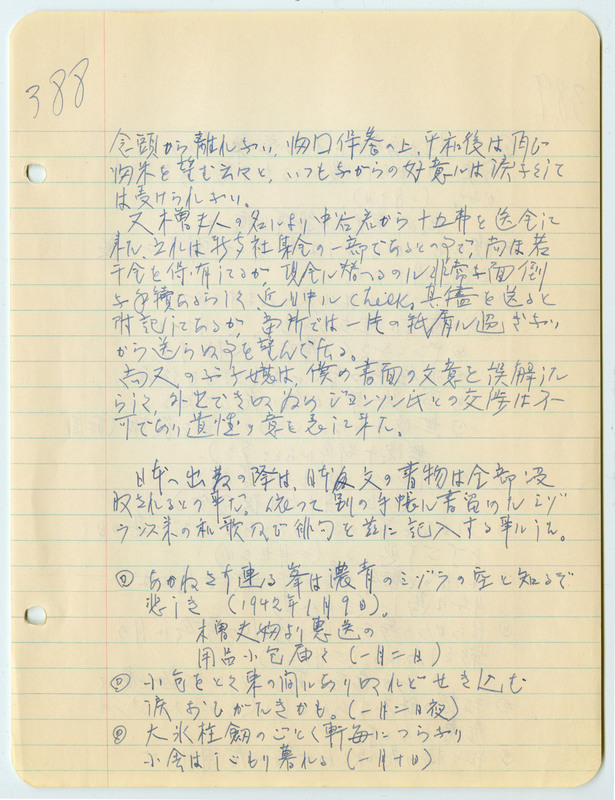 388
念頭から離れない、帰口保養の上、平和後は再び
帰米を望む云々と、いつもながらの好意には涙なくて
は受けられない。
又木曽夫人の名により中谷君から十五弗を送金して
来た、之れは社集金の一部であるとの事で、尚ほ若
干金を保有してるが、現金に替へるのに非常な面倒
な手続あるらしく、近日中に check, 其儘を送ると
附記してあるが、当所では一片の紙屑に過ぎない
から送らぬ事を望んで居る。
尚又のぶ子嬢は、僕の書面の文意を誤解した
らしく、外出できぬ為めジョンソン氏との交渉は不
可であり遺憾の意を表して来た。
日本へ出発の際は、日本文の書物は全部没
収されるとの事だ。依って別の手帳に書留めたミゾ
ラ以来の和歌及び俳句を茲に記入する事にした。
あかねさす連る峯は濃青のミゾラの空と知るぞ
悲しき (1942年1月9日)。
木曽夫婦より恵送の
用品小包届く (一月二日)
小包をとく束の間にありぬれどせき込む
涙おしがたきかも。(一月二日夜)
大氷柱剱のごとく軒毎につらなり
小舎はしじもり暮れる (一月十日)